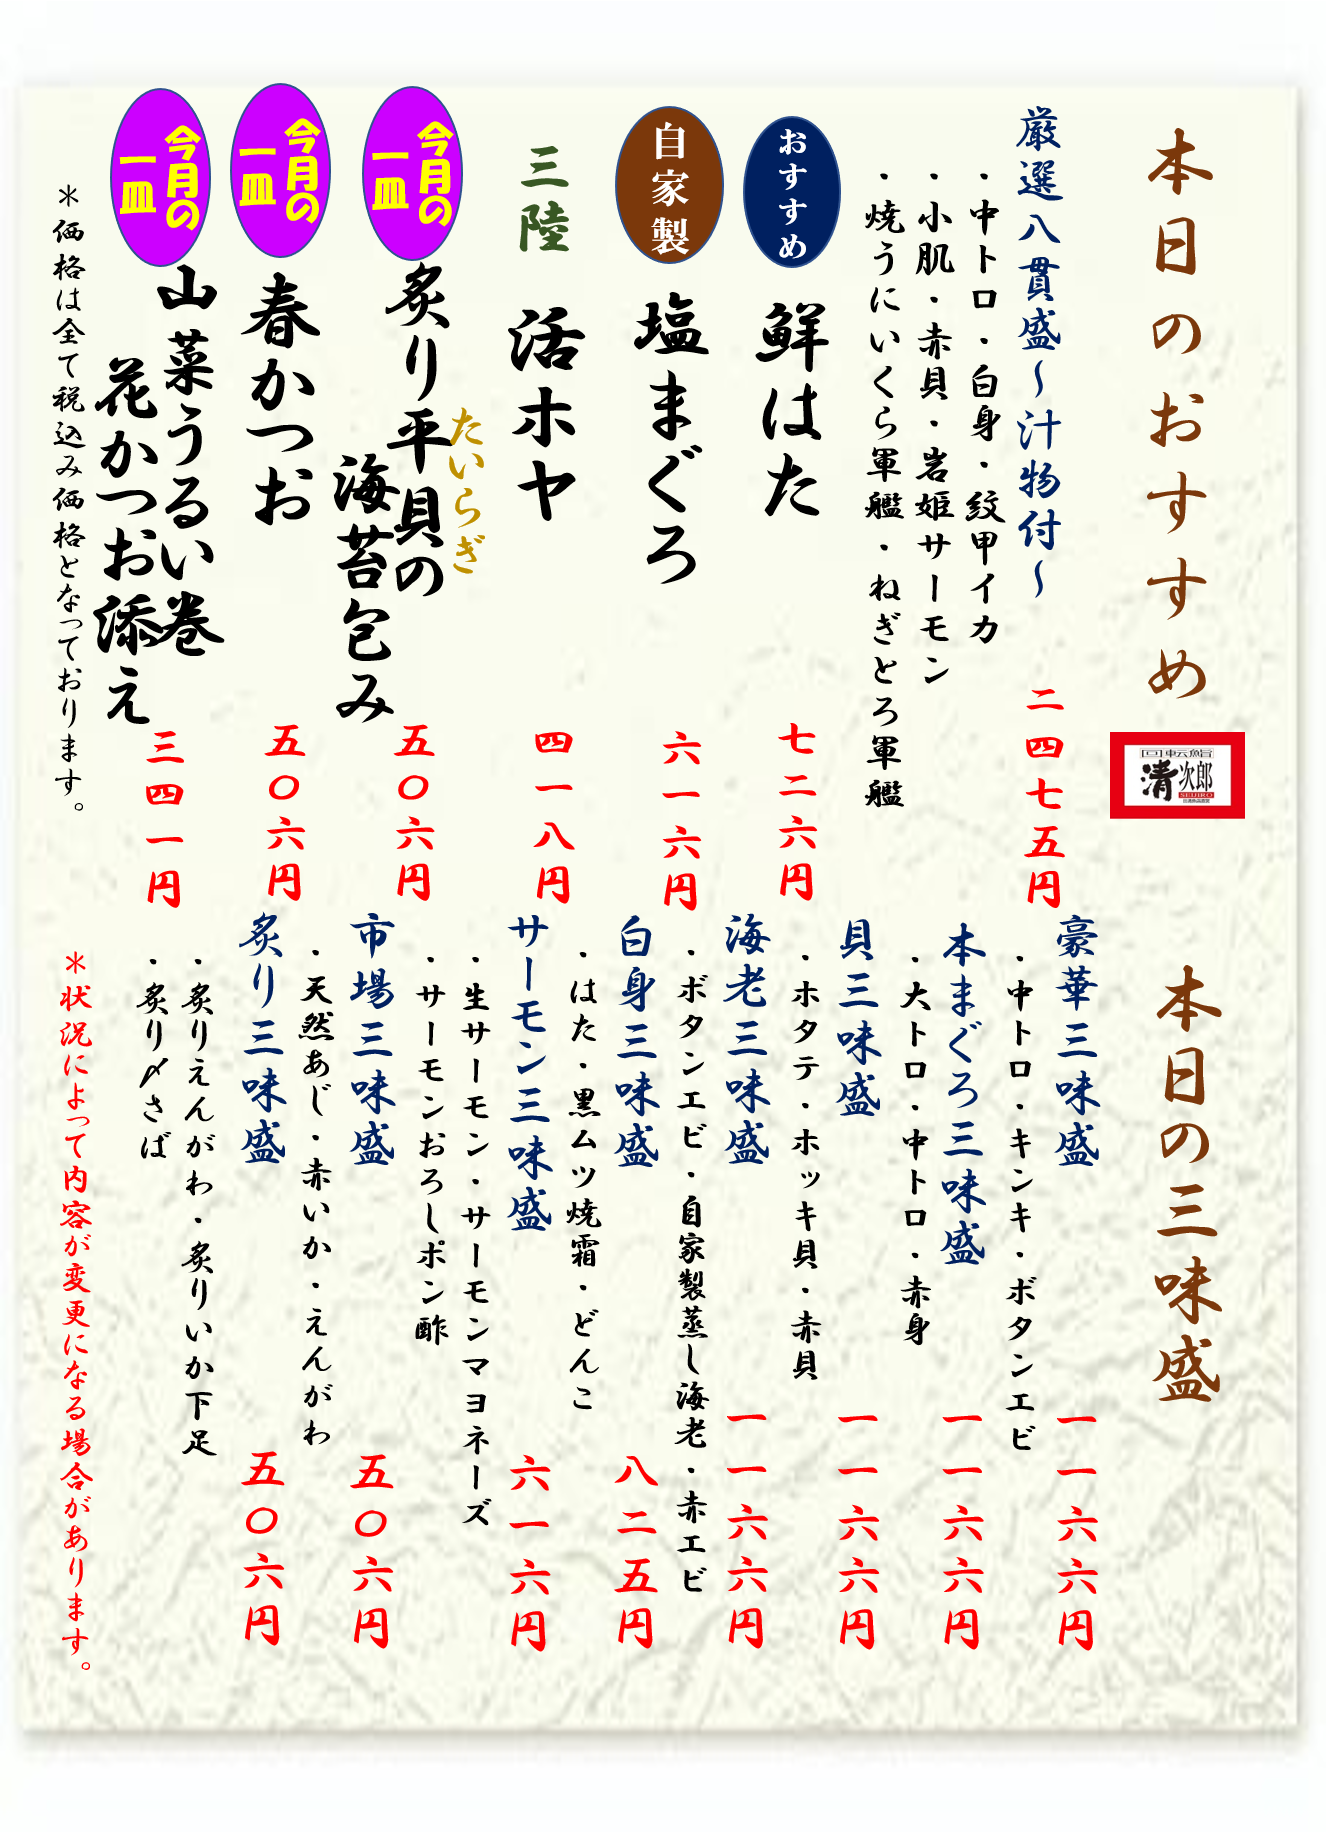 本日のおすすめ
回転鮨
清次郎
SEIJIRO
厳選八貫盛～汁物付～
二四七五円
・中トロ・白身・紋甲イカ
・小肌・赤貝・岩姫サーモン
・焼うにいくら軍艦・ねぎとろ軍艦
おすすめ
鮮はた
七二六円
自家製
塩まぐろ
六一六円
三陸
活ホヤ
四一八円
今月の
一皿
たいらぎ
炙り平貝の
海苔包み
五〇六円
今月の
一皿
春かつお
五〇六円
今月の
一皿
山菜うるい巻
花かつお添え
三四一円
＊価格は全て税込み価格となっております。
本日の三味盛
豪華三味盛
一一六六円
・中トロ・キンキ・ボタンエビ
本まぐろ三味盛
一一六六円
・大トロ・中トロ・赤身
貝三味盛
一一六六円
・ホタテ・ホッキ貝・赤貝
海老三味盛
一一六六円
・ボタンエビ・自家製蒸し海老・赤エビ
白身三味盛
八二五円
・はた・黒ムツ焼霜・どんこ
サーモン三味盛
六一六円
・生サーモン・サーモンマヨネーズ
・サーモンおろしポン酢
市場三味盛
五〇六円
・天然あじ・赤いか・えんがわ
炙り三味盛
五〇六円
・炙りえんがわ・炙りいか下足
・炙り〆さば
＊状況によって内容が変更になる場合があります。